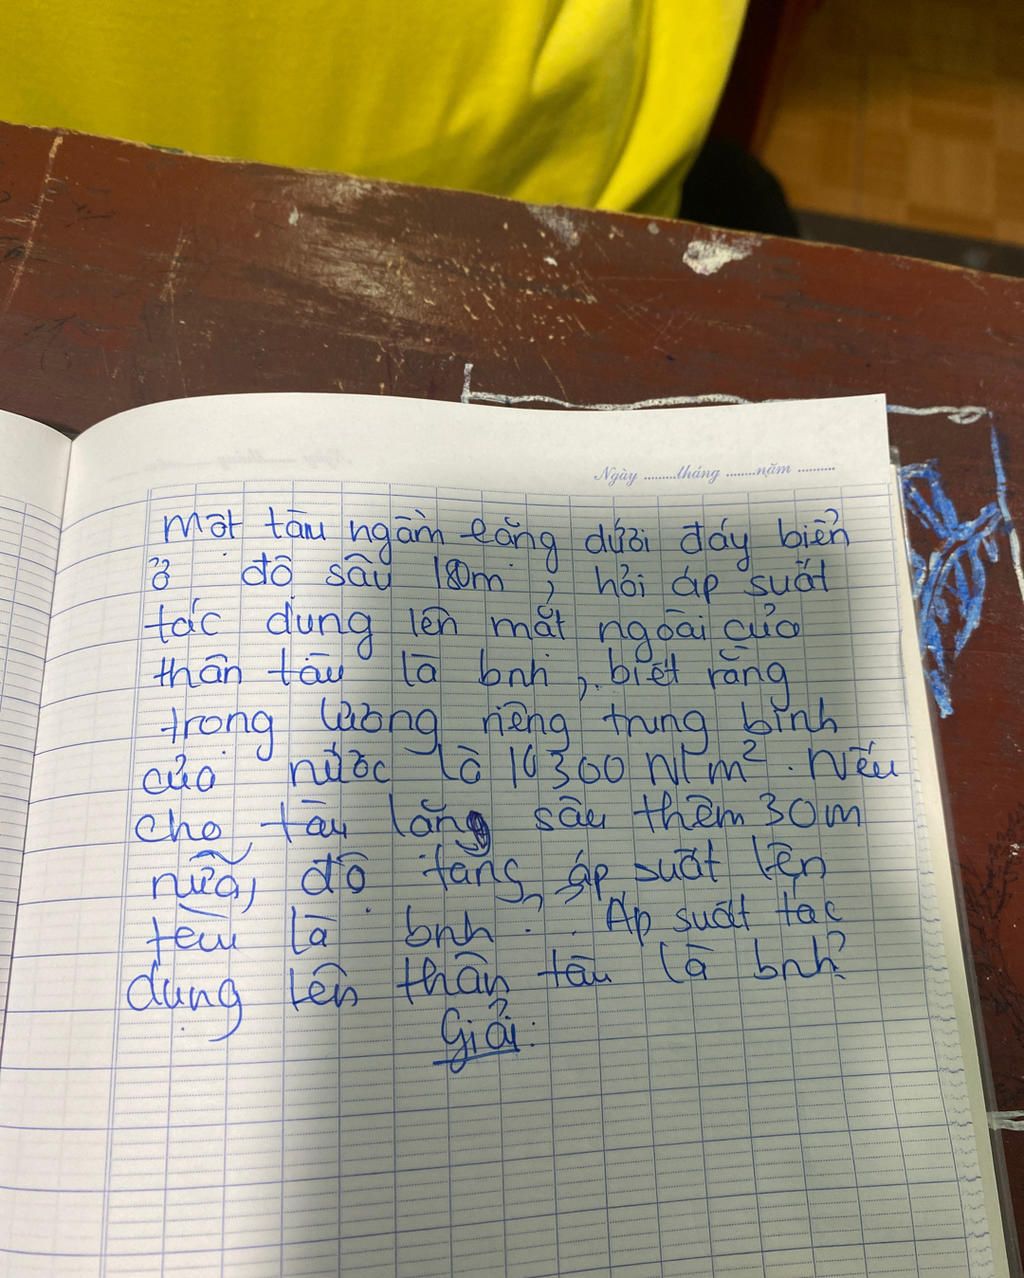 Ngày .........tháng ........năm ..........
Một tàu ngầm lặng dưới đáy biển
ở độ sâu 180m, hỏi áp suất
tác dụng lên mặt ngoài của
thân tàu là bnh, biết rằng
trong lương riêng trung bình
của nước là 10300 N/m². Nếu
cho tàu lặng sâu thêm 30m
nữa, độ tăng áp suất lên
tàu là bnh. Áp suất tác
dụng lên thân tàu là bnh?
Giải: